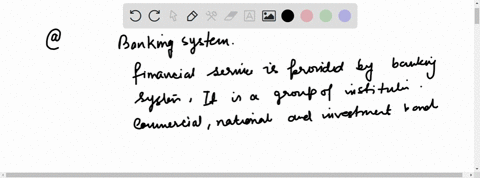 @ Banking system.
financial service is provided by banking
system. It is a group of institutin.
commercial, national and investment bond